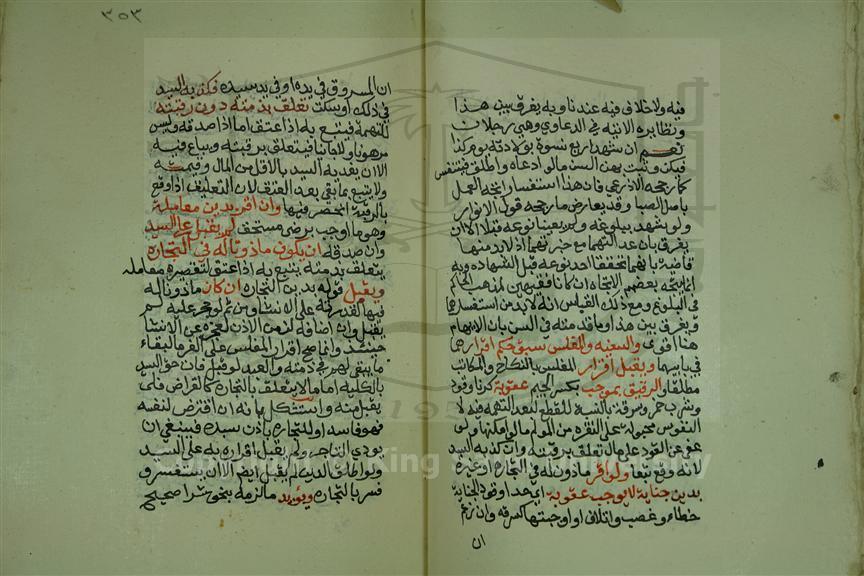 ٣٥٣
فيه ولا خلاف فيه عندنا وبه يفرق بين هذا
ونظايره الاتية في الدعاوي وهي رجلان
نعم ان شهد اربع نسوة بولادته يوم كذا
فيكن وثبت بهن السن مالو ادعاه واطلق فيستفسر
كما رجحه الاذرعي فان هذا استفسار اتجه العمل
باصل الصبا وقد يعارض ما رجحه قول الانوار
ولو شهد ببلوغه ولم يعينا نوعه قبلا الا ان
يفرق بان عدالتهما مع خبرتهما اذ لا بد منها
قاضية بانهما تحققا احد نوعيه قبل الشهادة وبه
يتجه بعضهم اتجاه ان كانا فقيهين لمذهب الحاكم
في البلوغ ومع ذلك القياس انه لا بد من استفسارهما
ويفرق بين هذا وما قدمته في السن بان الابهام
هنا اقوى والسفيه والمفلس سبق حكم اقرارهما
في بابيهما ويقبل اقرار المفلس بالنكاح والمكاتب
مطلقا والرقيق بموجب بكسر الجيم عقوبة كزنا وقود
وشرب خمر وسرقة بالنسبة للقطع لبعد التهمة فيه لان
النفوس مجبولة على النفرة من المولم مالم املها ولو
عفي عن القود على مال تعلق برقبته وان كذبه السيد
لانه وقع تبعا ولو اقر ماذون له في التجارة او غيره
بدين جناية لا توجب عقوبة اي حدا وقود كجناية
خطاء وغصب واتلاف او اوجبتها كسرقة وان زعم
ان
ان المسروق في يده او في يد سيده فكذبه السيد
في ذلك او سكت تعلق بذمته دون رقبته
للتهمة فيتبع به اذا عتق اما اذا صدقه وليس
مرهونا ولا جانيا فيتعلق برقبته ويباع فيه
الا ان يفديه السيد بالاقل من المال وقيمته
ولا يتبع بما بقي بعد العتق لان التعليق اذا وقع
بالرقبة انحصر فيها وان اقر بدين معاملة
وهو ما وجب برضى مستحقه لم يقبل على السيد
وان صدقه ان يكون ماذونا له في التجارة
يتعلق بذمته يتبع به اذا عتق لتقصيره معامله
ويقبل قوله بدين التجارة ان كان ماذونا له
فيها لقدرته على الانشا ومن ثم لو حجر عليه لم
يقبل وان اضافه لزمن الاذن لعجزه عن الانشا
حينئذ وانما صح اقرار المفلس على الغرما لبقاء
ما يبقى لهم في ذمته والعبد لو قبل فات حق السيد
بالكلية اما ما لا يتعلق بالتجارة كالقراض فلا
يقبل منه واستشكل بانه ان اقترض لنفسه
فهو فاسد او للتجارة باذن سيده فينبغي ان
يودي التاجر ولم يقبل اقراره به على السيد
ولو اطلق الدين لم يقبل ايضا الا ان يستفسر و
فسر بالتجارة ويؤيد مالزمه بنحو شرا صحيح